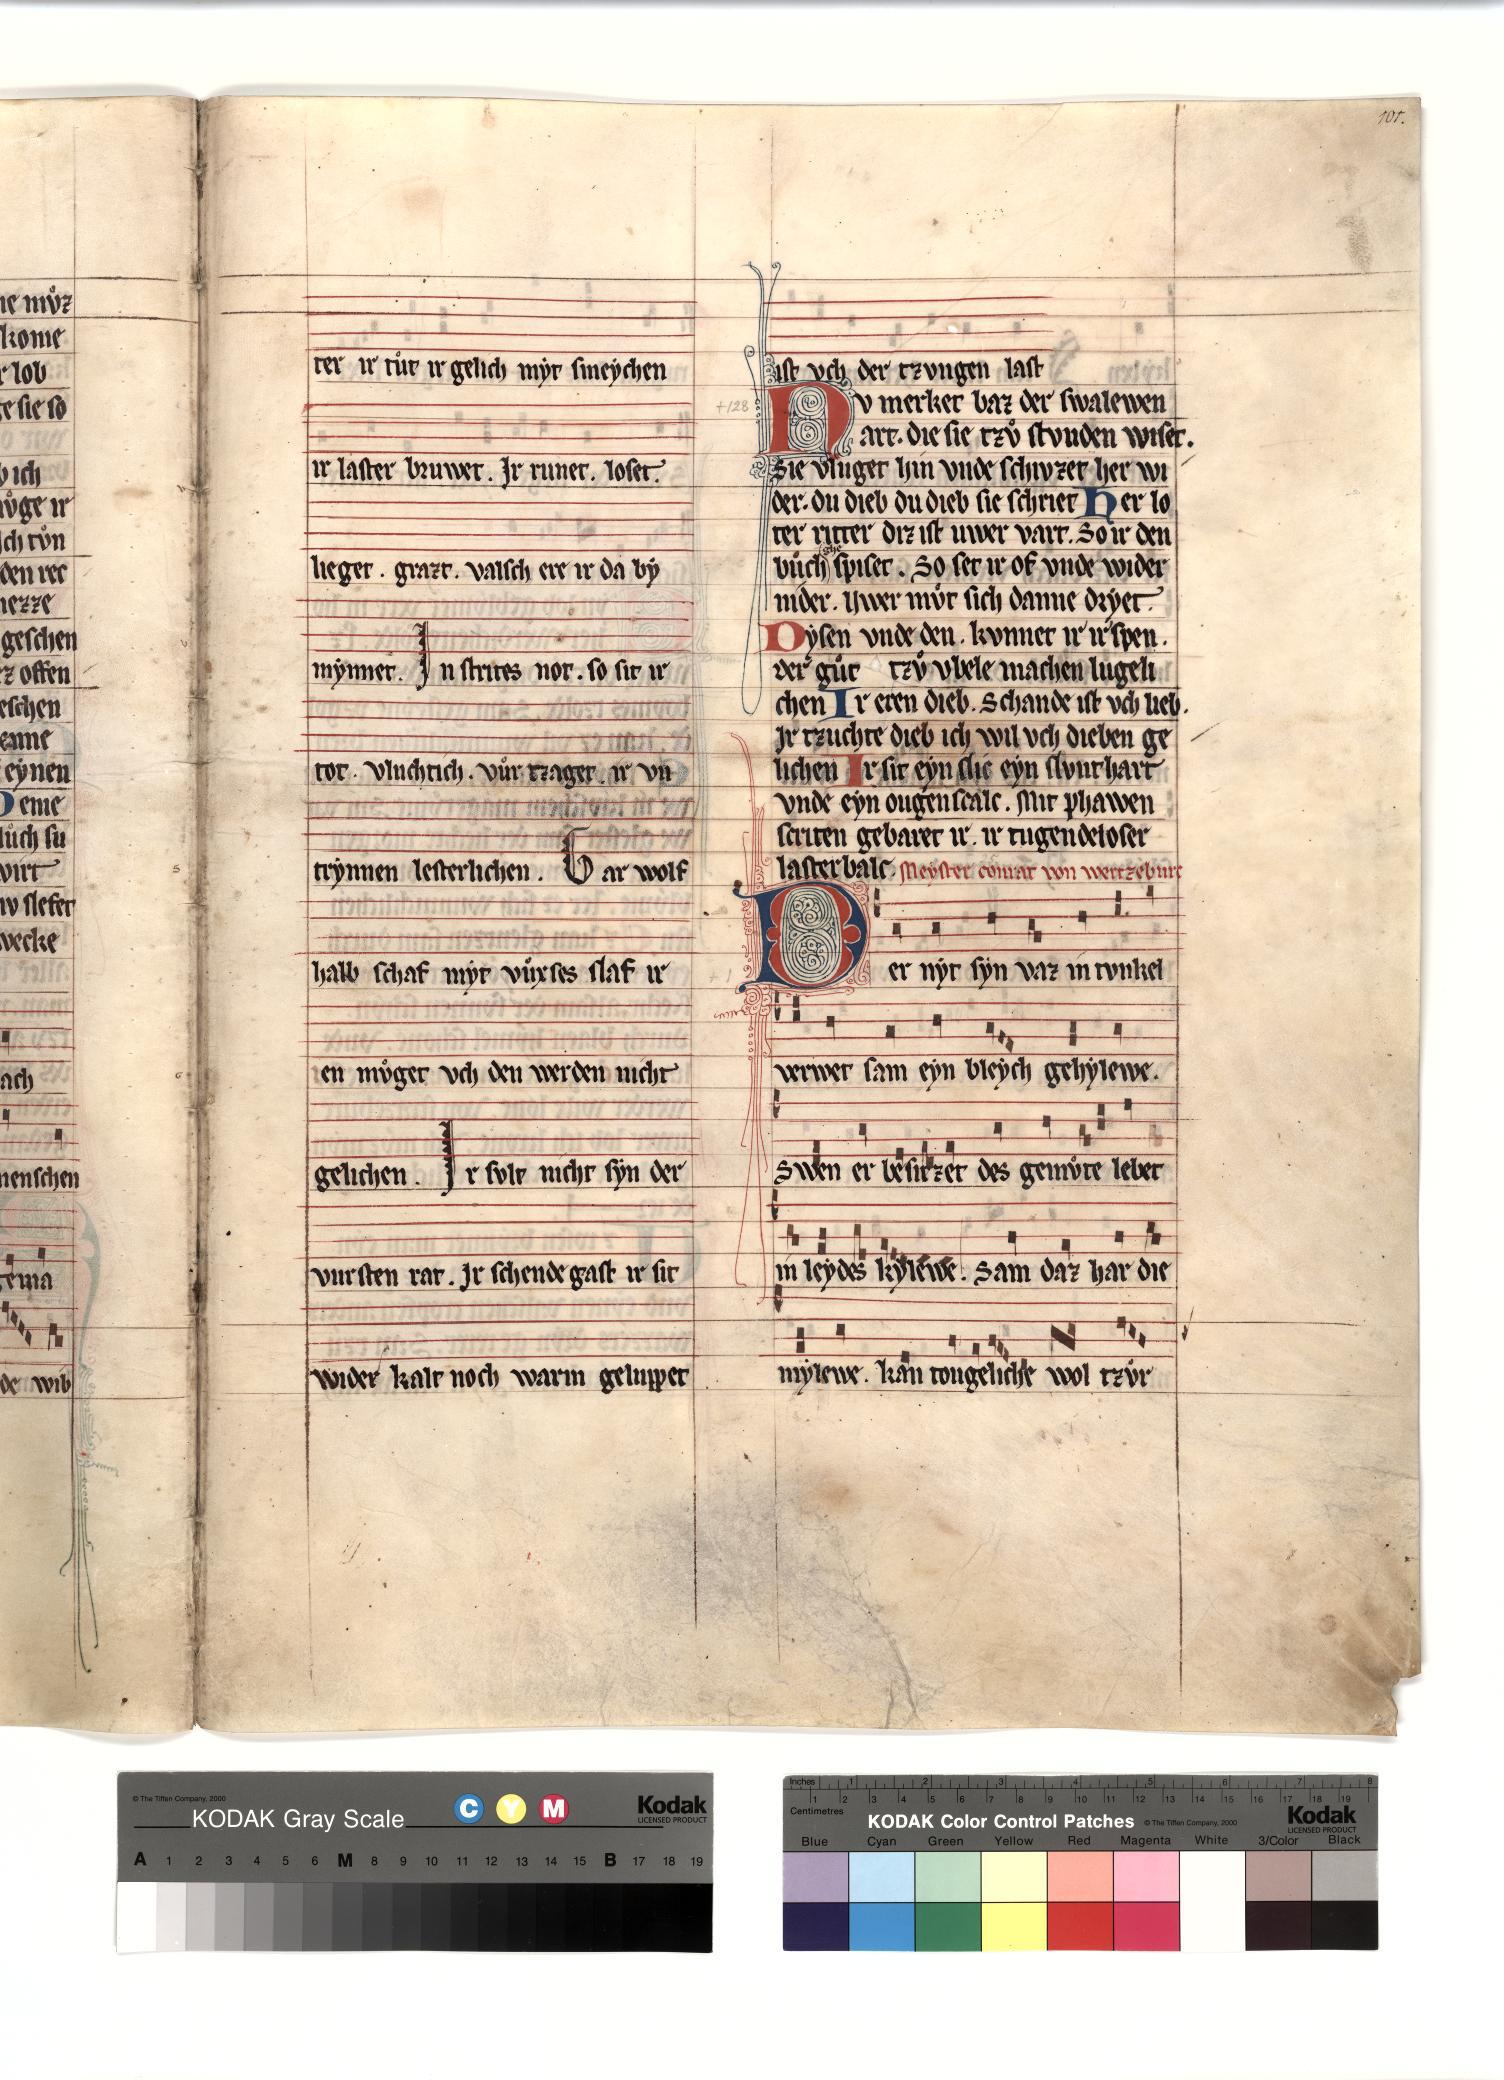 101.
ne můz
kome
r lob
ge sie so
ich
můge ir
ich tůn
den rec
nezze
geschen
z offen
eschen
enne
eynen
Deme
lůch su
wirt
nv slefet
wecke
ach
menschen
gema
de wib
ter ir tůt ir gelich myt smeychen
ir laster bruwet. Jr runet. loset.
lieget. grazt. valsch ere ir da by
mynnet. Jn strites not. so sit ir
tot. vluchtich. vůr tzaget. ir vn
trynnen lesterlichen. Gar wolf
halb schaf myt vůxses slaf ir
en můget vch den werden nicht
gelichen. Jr solt nicht syn der
vursten rat. Jr schende gast ir sit
wider kalt noch warm geluppet
ist vch der tzvngen last
+128
Nv merket baz der swalewen
art. die sie tzů stvnden wiset.
Sie vliuget hin vnde schivzet her wi
der. du dieb du dieb sie schriet Her lo
ter ritter diz ist uwer vart. So ir den
bůch spiset. So set ir of vnde wider
nider. Uwer můt sich danne dryet.
Dysen vnde den. kvnnet ir ir spen.
der gůt tzů vbele machen lugeli
chen Ir eren dieb. Schande ist vch lieb.
Jr tzuchte dieb ich wil vch dieben ge
lichen Ir sit eyn slic eyn slvnt hart
vnde eyn ougenscalc. Mit phawen
scriten gebaret ir. ir tugendeloser
lasterbalc. Meyster conrat von wertzeburc
Der nyt syn vaz in tvnkel
+1
verwet sam eyn bleych gehylewe.
Swen er besitzet des gemůte lebet
in leydes kylewe. Sam daz har die
mylewe. kan tougeliche wol tzůr
© The Tiffen Company, 2000
KODAK Gray Scale
C Y M
Kodak
LICENSED PRODUCT
A 1 2 3 4 5 6 M 8 9 10 11 12 13 14 15 B 17 18 19
Inches 1 2 3 4 5 6 7 8
Centimetres 1 2 3 4 5 6 7 8 9 10 11 12 13 14 15 16 17 18 19
KODAK Color Control Patches © The Tiffen Company, 2000
Kodak
LICENSED PRODUCT
Blue Cyan Green Yellow Red Magenta White 3/Color Black